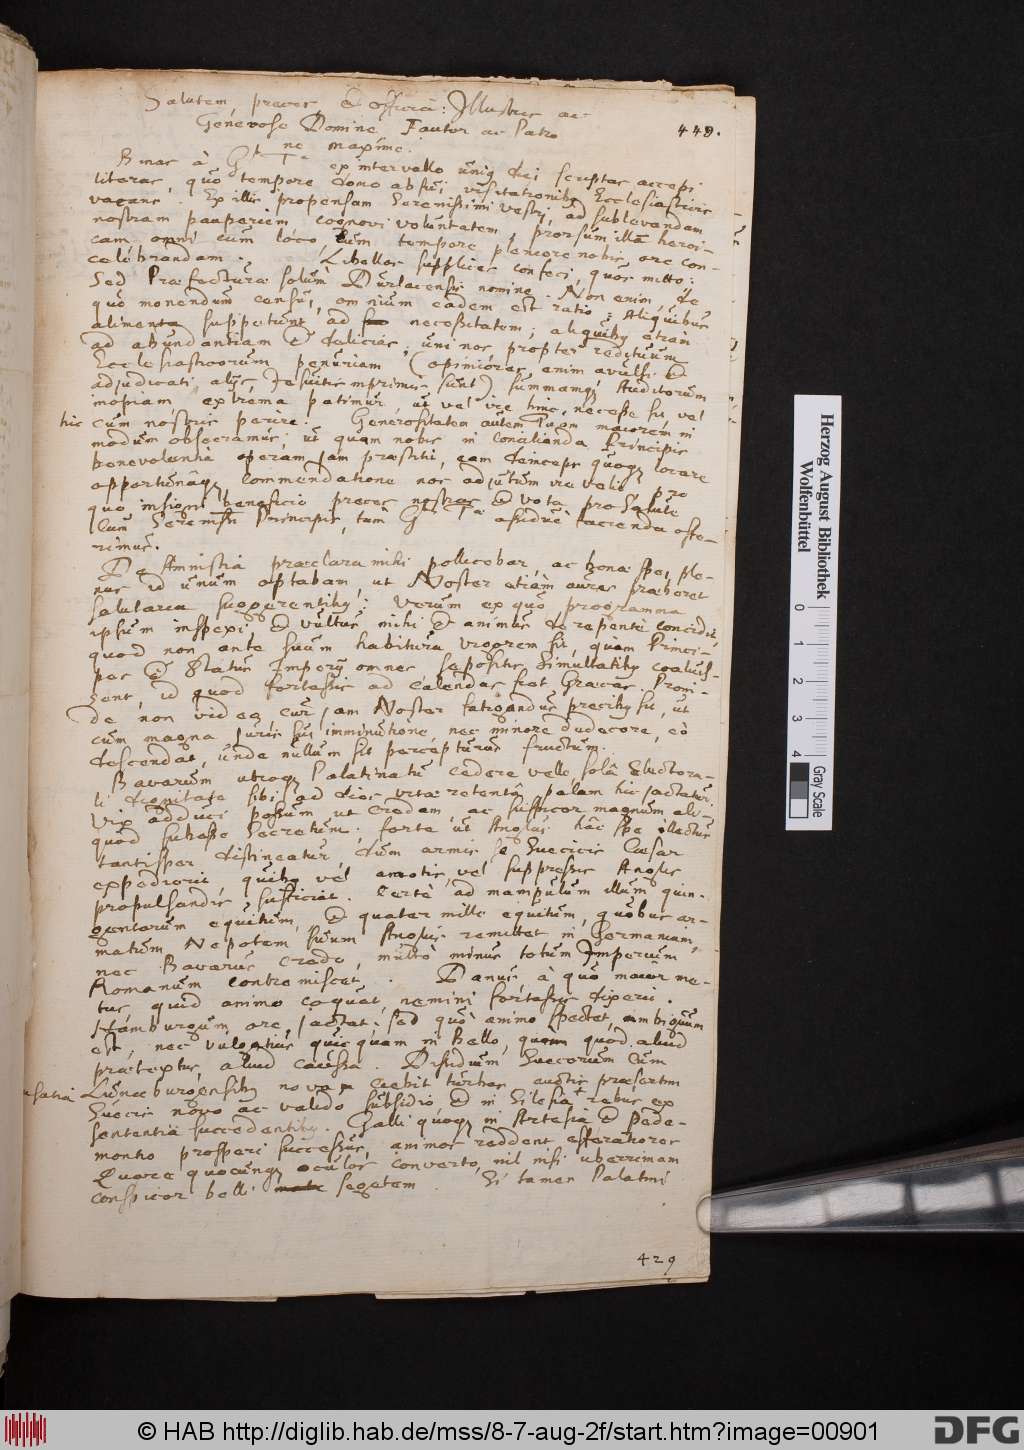 Salutem, preces & officia: Illustris ac
Generose Domine, Fautor ac Patro
ne maxime.
449.
Binas à Gte Ta ex intervallo unig diei scriptas accepi
literas, quo tempore domo absfui visitationibq Ecclesiasticis
vacans. Ex illis propensam Serenissimi Vestri, ad sublevandam
nostram pauperiem cognovi voluntatem, prorsum illā heroi-
cam omni cum loco, tum tempore pleniore nobis ore con-
celebrandam. Libellos supplices confeci, quos mitto:
Sed Praefecturae solum Durlacensis nomine. Non enim, de
quo monendum censui, omnium eadem est ratio: Aliquibus
alimenta suppetunt ad necessitatem; aliquibq etiam
ad abundantiam & delicias; uni nos propter redituum
Ecclesiasticorum penuriam (opimiores enim avulsi &
adjudicati alijs, Jesuitis inprimis sunt) summamq Auditorum
inopiam extrema patimur, ut vel ire hinc, necesse sit, vel
hic cum nostris perire. Generositatem autem Tuam maiorem in
modum obsecramus, ut quam nobis in concilianda Principis
benevolentia operam jam praestiti, eam deinceps quoq locare
opportunaq commendatione nos adjutum ire velit pro
quo insigni beneficio preces nostras & vota pro Salute
cum Serenissi Principis, tum Gtis Tae assidue facienda offe-
rimus.
De Amnistia praeclara mihi pollicebar, ac bona spei ple-
nus id unum optabam, ut Noster etiam aures praeberet
salutaria suggerentibq: Verum ex quo programma
ipsum inspexi, & vultus mihi & animus derepente concidit,
quod non ante suum habitura vigorem sit, quam Princi-
pes & Status Imperij omnes sepositis simultatibq coaluis-
sent, id quod fortassis ad Calendas fiet Graecas. Proin-
de non video, cur jam Noster fatigandus precibq sit, ut
cum magna juris sui imminutione, nec minore dedecore, eò
descendat, unde nullum sit percepturus fructum.
Bavarum utroq Palatinatu cedere velle, solâ Electora-
li dignitate sibi ad dies vitae retentâ palam hic jactatur.
Vix adduci possum ut credam, ac suspicor magnum ali-
quod subesse Secretum. forte ut Anglus hâc spe illectus
tantisper distineatur, dum armis se Suecicis Caesar
expedierit, quibq vel amotis, vel suppressis Anglis
propulsandis sufficiat. Certè ad manipulum illum quin-
gentorum equitum, & quater mille equitum, quibus ar-
matum Nepotem suum Anglus remittet in Germaniam,
nec Bavarus credo, multò minus totum Imperium
Romanum contremiscet. Danus, à quo maior me-
tus, quid animo coquat, nemini fortassis aperit.
Hamburgum ore jactat: sed quò animo spectet, ambiguum
est, nec vulgatius quicquam in Bello, quam quod aliud
praetextus, aliud caussa. Dissidium Suecorum cum
Lunaeburgensibq novas ciebit turbas, auctis praesertim
Suecis novo ac valido subsidio & in Silesia + rebus ex
sententia succedentibq. Galli quoq in Artesia & Pede-
montio prosperi successus, animos reddent efferatiores
Quare quocunq oculos converto, nil nisi uberrimam
conspicor belli segetem. Si tamen Palatini
429
Herzog August Bibliothek
Wolfenbüttel
0 1 2 3 4
Gray Scale
© HAB http://diglib.hab.de/mss/8-7-aug-2f/start.htm?image=00901
DFG